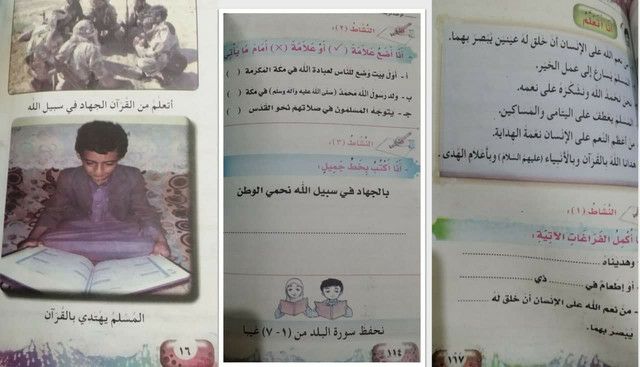 أتعلم من القرآن الجهاد في سبيل الله
المُسلمُ يهتدي بالقُرآن
١٦
النَّشَاطُ (٢):
- أنَا أضَعُ عَلاَمَةَ (✓) أوْ عَلاَمَةَ (×) أمَامَ مَا يَأتِي
أ - أول بيت وضع للناس لعبادة الله في مكة المكرمة ( )
ب - ولد رسول الله محمد (صلى الله عليه وآله وسلم) في مكة ( )
جـ - يتوجه المسلمون في صلاتهم نحو القدس ( )
النَّشَاطُ (٣):
- أنَا أكْتُبُ بِخَطٍّ جَمِيلٍ:
بالجهاد في سبيل الله نحمي الوطن
نحفظ سورة البلد من (١-٧) غيبا
١١٤
أنَا أتَعَلَّمُ
نعم الله على الإنسان أن خلق له عينين يبصر بهما.
المسلم يسارع إلى عمل الخير.
نحن نحمد الله ونشكره على نعمه.
المسلم يعطف على اليتامى والمساكين.
من أعظم النعم على الإنسان نعمة الهداية.
هدانا الله بالقرآن وبالأنبياء (عليهم السلام) وبأعلام الهدى.
النَّشَاطُ (١):
أُكْمِلُ الفَرَاغَاتِ الآتِيَةِ:
وهديناه
- أو إطعام في ........ ذي
- من نعم الله على الإنسان أن خلق له
يبصر بهما.
١١٧